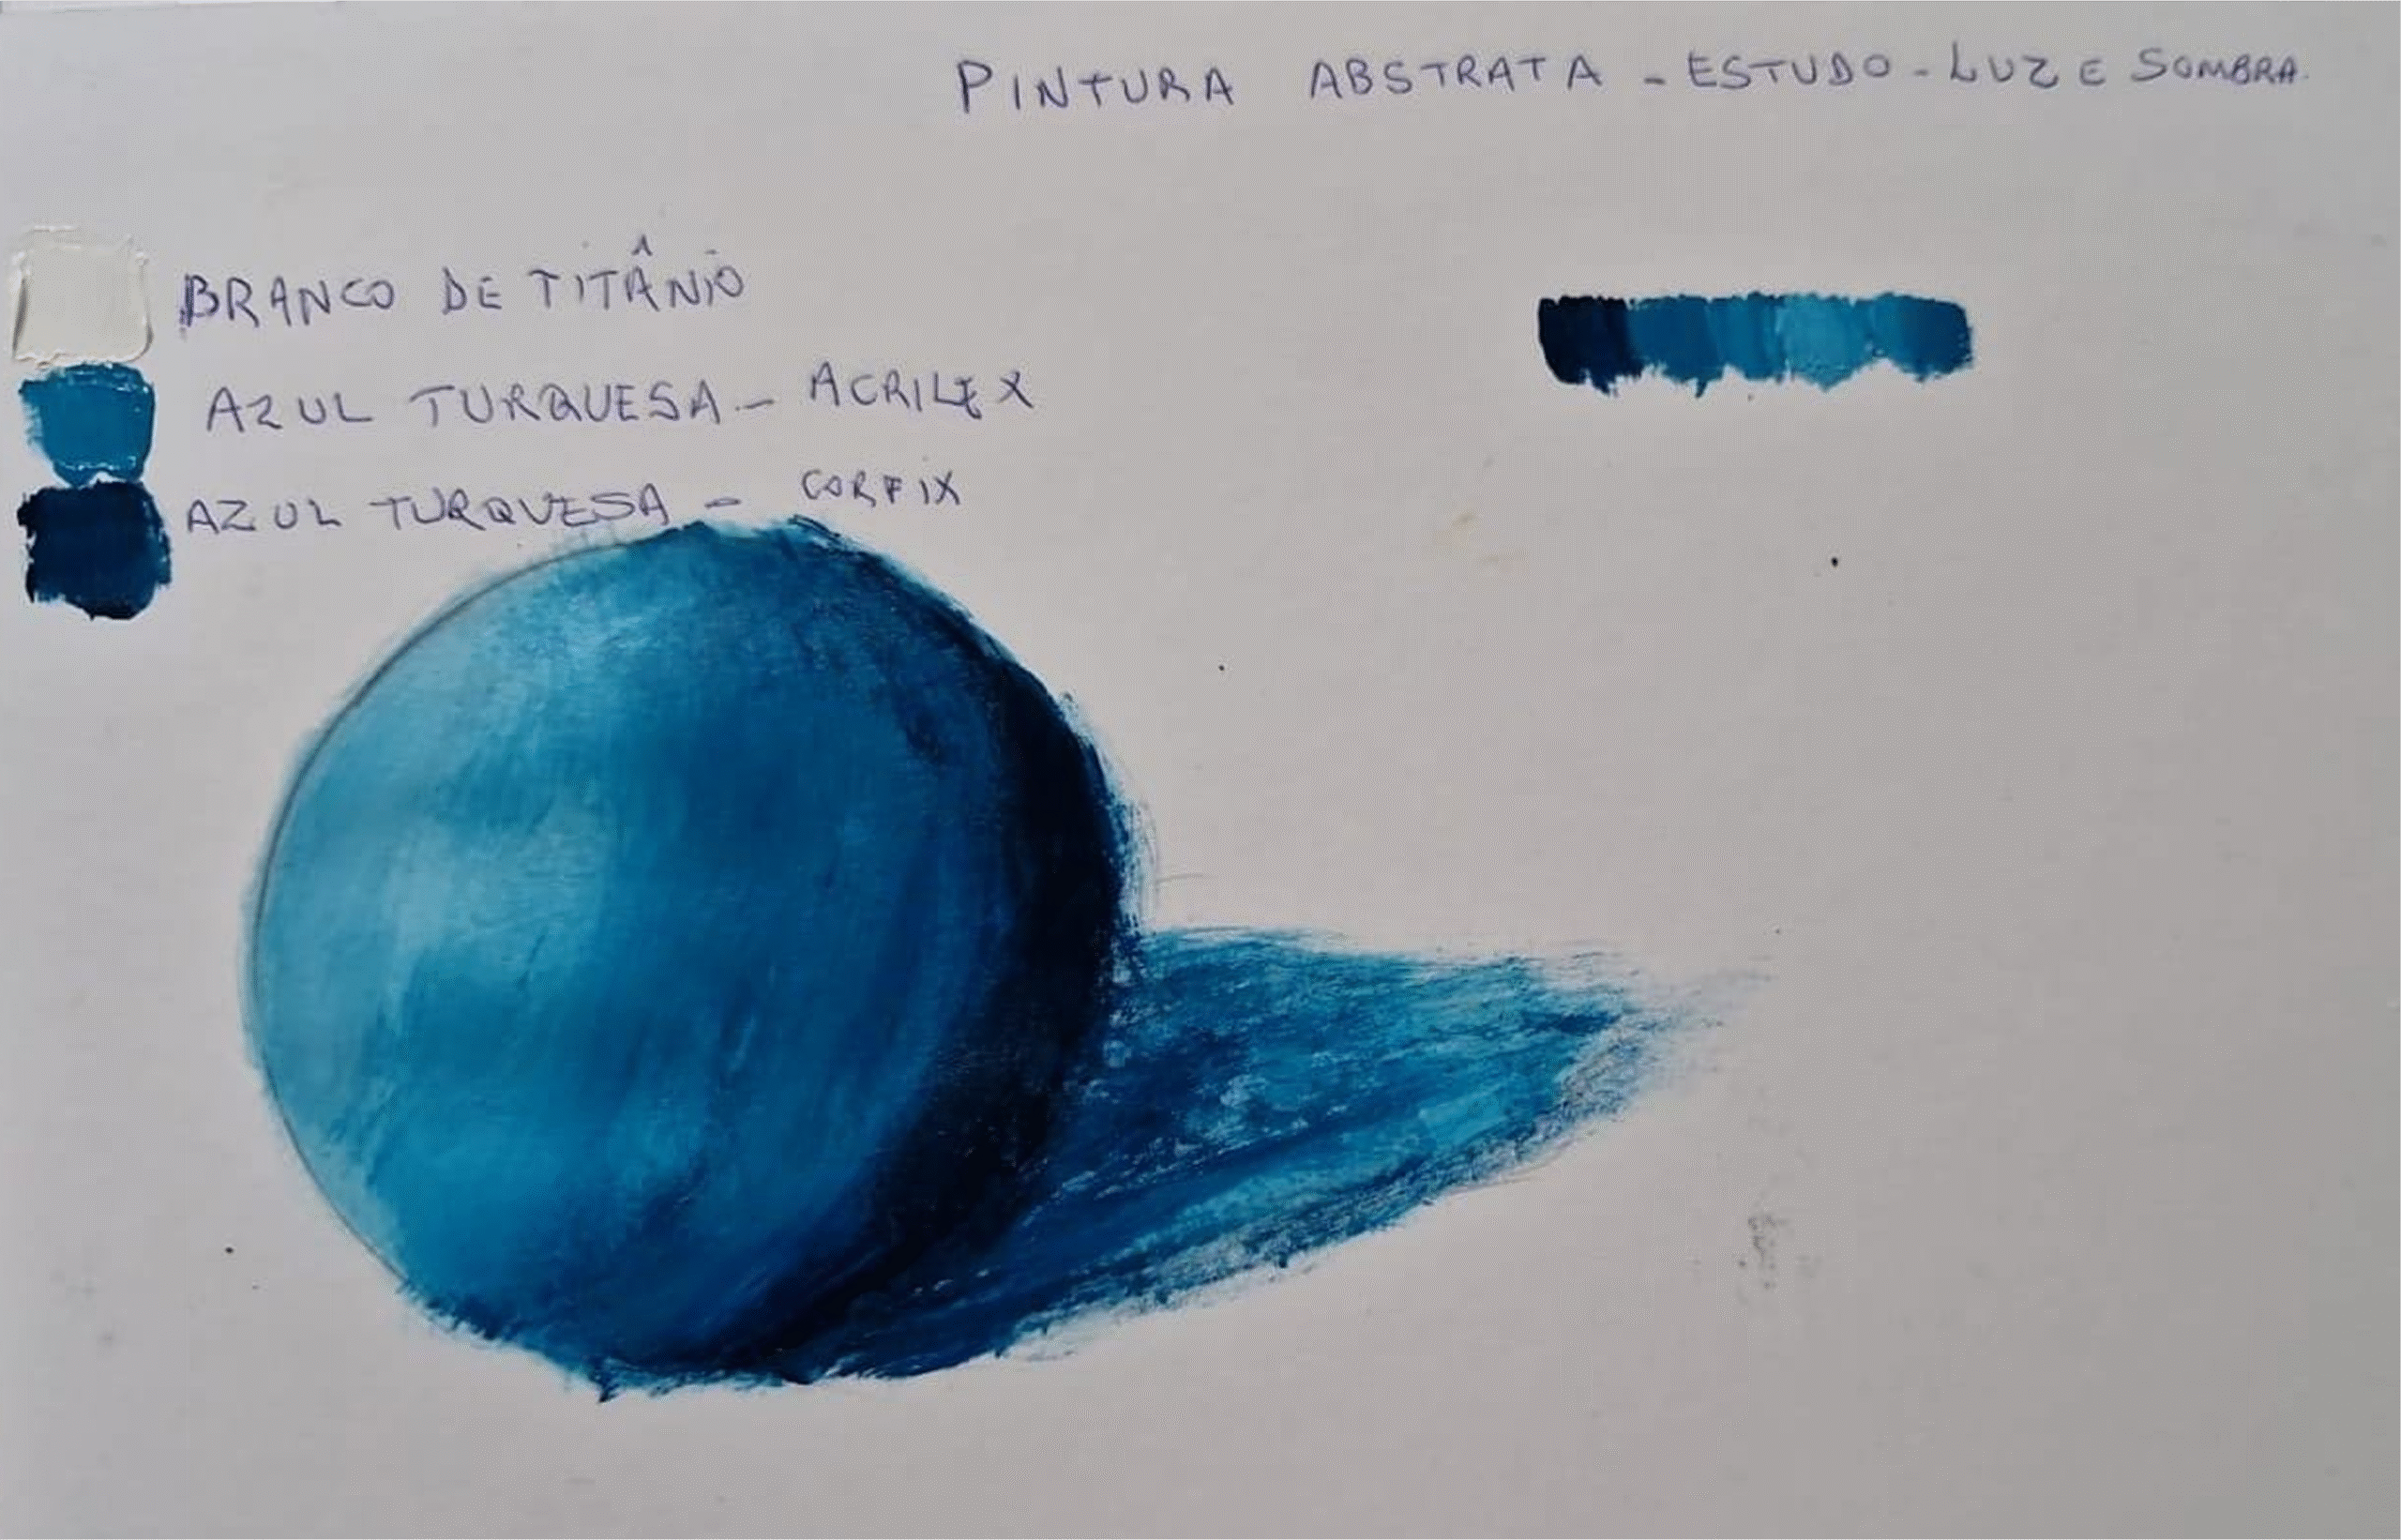 PINTURA ABSTRATA - ESTUDO - LUZ E SOMBRA.
BRANCO DE TITÂNIO
AZUL TURQUESA - ACRILEX
AZUL TURQUESA - CORFIX